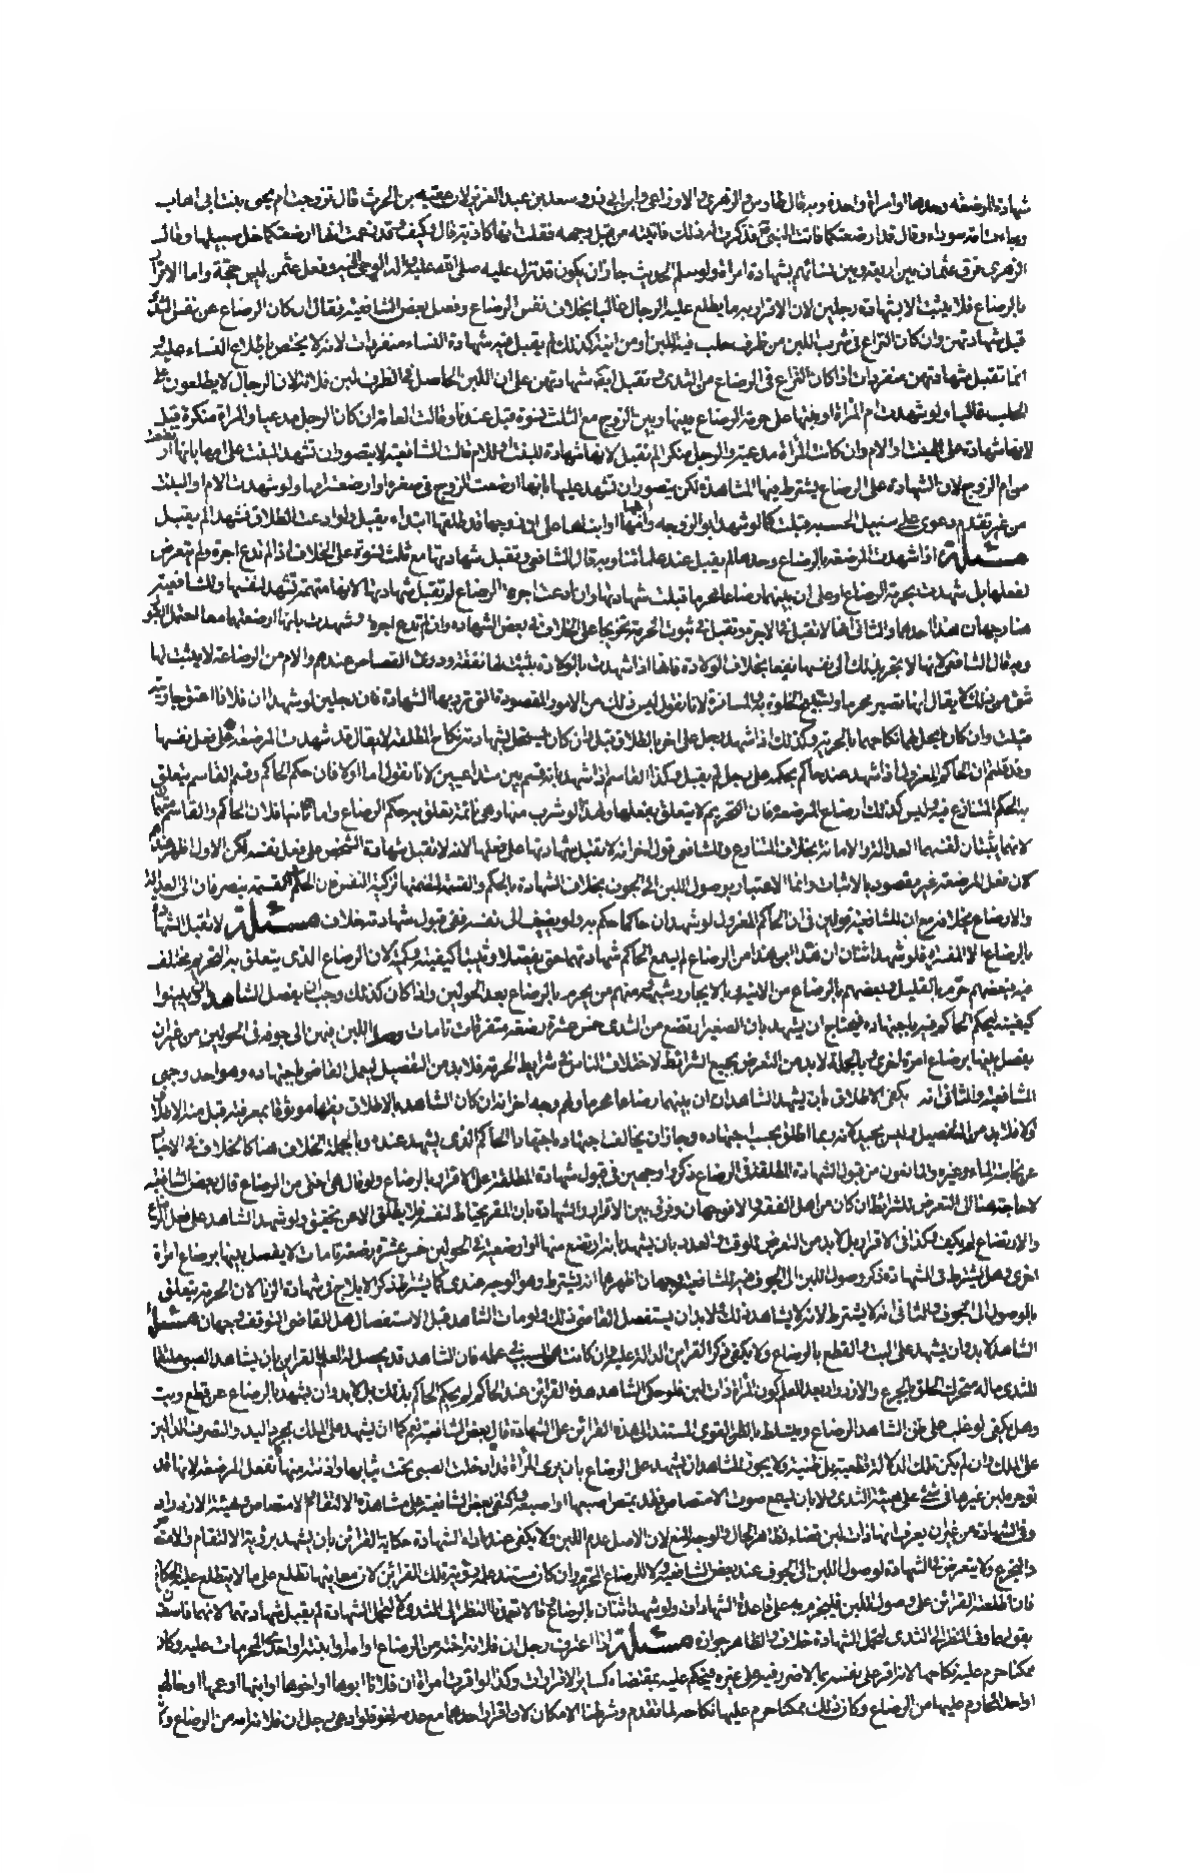 شهادة المرضعة وحدها او امرأة واحدة وبه قال طاوس والزهري والاوزاعي وابن ابي ذئب وسعد بن عبد العزيز لان عقبة بن الحرث قال تزوجت ام يحيى بنت ابي اهاب
وجاءت امة سوداء وقالت قد ارضعتكما فاتيت النبي فذكرت له ذلك فاتيته من قبل وجهه فقلت انها كاذبة قال وكيف وقد زعمت انها ارضعتكما خل سبيلها وقال
الزهري فرق عثمان بين اربعة وبين نسائهم بشهادة امرأة ولو سلم الحديث جاز ان يكون قد نزل عليه صلى الله عليه واله الوحي وفعل عثمن ليس حجة واما الاقرار
بالرضاع فلا يثبت الا بشهادة رجلين لان الاقرار مما يطلع عليه الرجال غالبا بخلاف نفس الرضاع وفصل بعض الشافعية فقال ان كان الرضاع عن نفس الثدي
قبل شهادتهن وان كان النزاع في شرب اللبن من ظرف حلب فيه اللبن او من آنية كذلك لم يقبل فيه شهادة النساء منفردات لانه لا يختص باطلاع النساء عليه
انما تقبل شهادتهن منفردات اذا كان النزاع في الرضاع من الثدي و تقبل شهادتهن على ان اللبن الحاصل في الظرف لبن فلانة لان الرجال لا يطلعون على
الحلب غالبا ولو شهدت ام المرأة وبنتها على حرمة الرضاع بينها وبين الزوج مع ثلث نسوة قبل عندنا وقالت العامة ان كان الرجل مدعيا والمرأة منكرة قبل
لانها شهادة على البنت او الام وان كانت المرأة مدعية والرجل منكر لم تقبل لانها شهادة للبنت او للام قالت الشافعية لا يتصور ان تشهد البنت على امها بانها ارتضعت
من ام الزوج لان الشهادة على الرضاع يشترط فيها المشاهدة لكن يتصور ان تشهد عليها بانها ارضعت الزوج في صغره او ارضعته امها ولو شهدت الام او البنت
من غير تقدم دعوى على سبيل الحسبة قبلت كما لو شهد ابو الزوجة وابنها او ابناها على ان زوجها قد طلقها ابتداء يقبل ولو ادعت الطلاق فشهدا لم يقبل
مسئلة اذا شهدت المرضعة بالرضاع وحدها لم يقبل عند علمائنا وبه قال الشافعي وتقبل شهادتها مع ثلث نسوة على الخلاف اذا لم تدع اجرة ولم تتعرض
لفعلها بل شهدت بحرمة الرضاع او على ان بينهما رضاعا محرما قبلت شهادتها وان ادعت اجرة الرضاع لم تقبل شهادتها لانها متهمة تشهد لنفسها وللشافعية
هنا وجهان هذا احدهما والثاني انها لا تقبل في الاجرة وتقبل في ثبوت الحرمة تخريجا على الخلاف في بعض الشهادة وان لم تدع اجرة وشهدت بانها ارضعتهما معا احتمل القبول
وبه قال الشافعي لانها لا تجر بذلك الى نفسها نفعا بخلاف الولادة فانها اذا شهدت بالولادة يثبت لها نفقة ودون القصاص عندهم والام من الرضاعة لا يثبت لها
شئ من ذلك لا يقال انها تصير محرما ويستبيح الخلوة به والمسافرة لانا نقول ليس ذلك من الامور المقصودة التي ترد بها الشهادة فان رجلين لو شهدا ان فلانا اعتق جاريته
قبلت وان كان يحل لهما نكاحها بالحرية وكذلك اذا شهد رجل على اخر بالطلاق قبل وان كان يستحل بشهادته نكاح المطلقة لا يقال قد شهدت المرضعة على فعل نفسها
وقد قلتم ان الحاكم المعزول اذا شهد عند حاكم بحكمه على رجل لم يقبل وكذا القاسم اذا شهد بانه قسم بين متداعيين لانا نقول اما اولا فان حكم الحاكم وقسم القاسم يتعلق
بالحكم المتنازع فيه وليس كذلك ارضاع المرضعة فان التحريم لا يتعلق بفعلها ولهذا لو شرب منها وهي نائمة تعلق به حكم الرضاع واما ثانيا فلان الحاكم والقاسم متهمان
لانهما يثبتان لنفسهما العدالة والامانة بخلاف المتنازع وللشافعي قول اخر انه لا تقبل شهادتها على فعلها لانه لا تقبل شهادة الشخص على فعل نفسه لكن الاول اظهر عندهم
لان فعل المرضعة غير مقصود بالاثبات وانما الاعتبار بوصول اللبن الى الجوف بخلاف الشهادة بالحكم والقسمة لتضمنها تزكية النفس فان الحكم والقسمة ينصرفان الى العدالة
والارضاع بخلافه مع ان للشافعية قولين في ان الحاكم المعزول لو شهد ان حاكما حكم به ولم يضف الى نفسه ففي قبول شهادته خلاف مسئلة لا تقبل الشهادة
بالرضاع الا مفسرة فلو شهد اثنان ان هذا ابن هذا من الرضاع لم يسمع الحاكم شهادتهما حتى يفصلا ويبينا كيفيته وكميته لان الرضاع الذي يتعلق به التحريم يختلف
فيه بعضهم حرم بالقليل وبعضهم بالرضاع من الانية ومنهم من يحرم بالرضاع بعد الحولين واذا كان كذلك وجب ان يفصل الشاهد
كيفيته ليحكم الحاكم فيه باجتهاده فيحتاج ان يشهد بان الصغير ارتضع من الثدي خمس عشرة رضعة متفرقات تامات وصل اللبن فيهن الى جوفه في الحولين من غير ان
يفصل بينها برضاع امرأة اخرى وبالجملة لا بد من التعرض بجميع الشرائط لاختلاف الناس في شرايط الحرمة فلا بد من التفصيل ليعمل القاضي باجتهاده وهو احد وجهي
الشافعية والثاني انه يكفي الاطلاق بان يشهد الشاهدان ان بينهما رضاعا محرما ولهم وجه اخر انه ان كان الشاهد بالاطلاق فقيها موثوقا بمعرفته قبل منه الاطلاق
والا فلا بد من التفصيل وليس بجيد لانه ربما اطلق بحسب اجتهاده وجاز ان يخالف اجتهاده اجتهاد الحاكم الذي يشهد عنده وبالجملة الخلاف هنا كالخلاف في الاخبار
عن نجاسة الماء وغيره والمانعون من قبول الشهادة المطلقة في الرضاع ذكروا وجهين في قبول شهادة المطلقة على الاقرار بالرضاع ولو قال هي اختي من الرضاع قال بعض الشافعية
لا حاجة هنا الى التعرض للشرائط ان كان من اهل الفقه والا فوجهان وفرق بين الاقرار والشهادة بان المقر يحتاط لنفسه فلا يطلق الا عن تحقيق ولو شهد الشاهد على فعل الرضاع
والارتضاع لم يكف وكذا في الاقرار بل لا بد من التعرض للوقت والعدد بان يشهد بانه ارتضع منها او ارضعته في الحولين خمس عشرة رضعة تامات لا يفصل بينها برضاع امرأة
اخرى وهل يشترط في الشهادة ذكر وصول اللبن الى الجوف للشافعية وجهان اظهرهما انه يشترط وهو الوجه عندي كما يشترط ذكر الايلاج في شهادة الزنا لان الحرمة يتعلق
بالوصول الى الجوف والثاني انه لا يشترط لانه لا يشاهد ذلك ولا بد ان يستفصل القاضي ذلك ولو مات الشاهد قبل الاستفصال هل للقاضي التوقف وجهان مسئلة
الشاهد لا بد وان يشهد على البت والقطع بالرضاع ولا يكفي ذكر القراين الدالة عليه وان كانت هي السبب في علمه فان الشاهد قد يحصل له العلم بالقراين بان يشاهد الصبي ملتقما
للثدي ماله متحرك الحلق بالتجرع والازدراد بعد العلم بكون المرأة ذات لبن فلو حكى الشاهد هذه القرائن عند الحاكم لم يحكم الحاكم بذلك بل لا بد وان يشهد بالرضاع عن قطع وبت
وهل يكفي لو غلب على ظن الشاهد الرضاع وتسلط بالظن القوي المستند الى هذه القرائن على الشهادة قال بعض الشافعية نعم كما ان يشهد على الملك بمجرد اليد والتصرف الدالين
على الملك وان لم يكن تلك الدلالة قطعية بل ظنية ولا يجوز للشاهد ان يشهد على الرضاع بان يرى المرأة قد ادخلت الصبي تحت ثيابها وادنته منها تفعل المرضعة لانها قد
توجره لبن غيرها في شئ على هيئة الثدي ولا بان يسمع صوت الامتصاص فقد يمتص اصبعها او اصبعه واكتفى بعض الشافعية على مشاهدة الالتقام والامتصاص وهيئة الازدراد
وفي الشهادة من غير ان يعرف انها ذات لبن قضاء لظاهر الحال والوجه المنع لان الاصل عدم اللبن ولا يكفي عند اداء الشهادة حكاية القرائن بان يشهد برؤية الالتقام والامتصاص
والتجرع ولا يتعرض في الشهادة لوصول اللبن الى الجوف عند بعض الشافعية ولا للرضاع المحرم وان كان مستند علمه رؤية تلك القرائن لان معاينتها تطلع على ما لا يطلع عليه الحكاية
فان اطلعته القرائن على وصول اللبن فليجزم به على قاعدة الشهادات ولو شهد اثنان بالرضاع وقالا تعمدنا النظر الى الثدي ولا لتحمل الشهادة لم يقبل شهادتهما لانهما فاسقان
بقولهما وفي النظر الى الثدي لتحمل الشهادة خلاف والظاهر جوازه مسئلة اذا اعترف رجل ان فلانة اخته من الرضاع او امه او ابنته او احدى المحرمات عليه وكان
ممكنا حرم عليه نكاحها لانه اقر على نفسه بما لا ضرر فيه على غيره فيحكم عليه بمقتضاه كساير الاقرارات وكذا لو اقرت امرأة ان فلانا ابوها او اخوها او ابنها او عمها او خالها
او احد المحارم عليها من الرضاع وكان ذلك ممكنا حرم عليها نكاحه لما تقدم وشرطنا الامكان لان اقرار احدهما مع عدمه لغو فلو ادعى رجل ان فلانة امه من الرضاع وكان